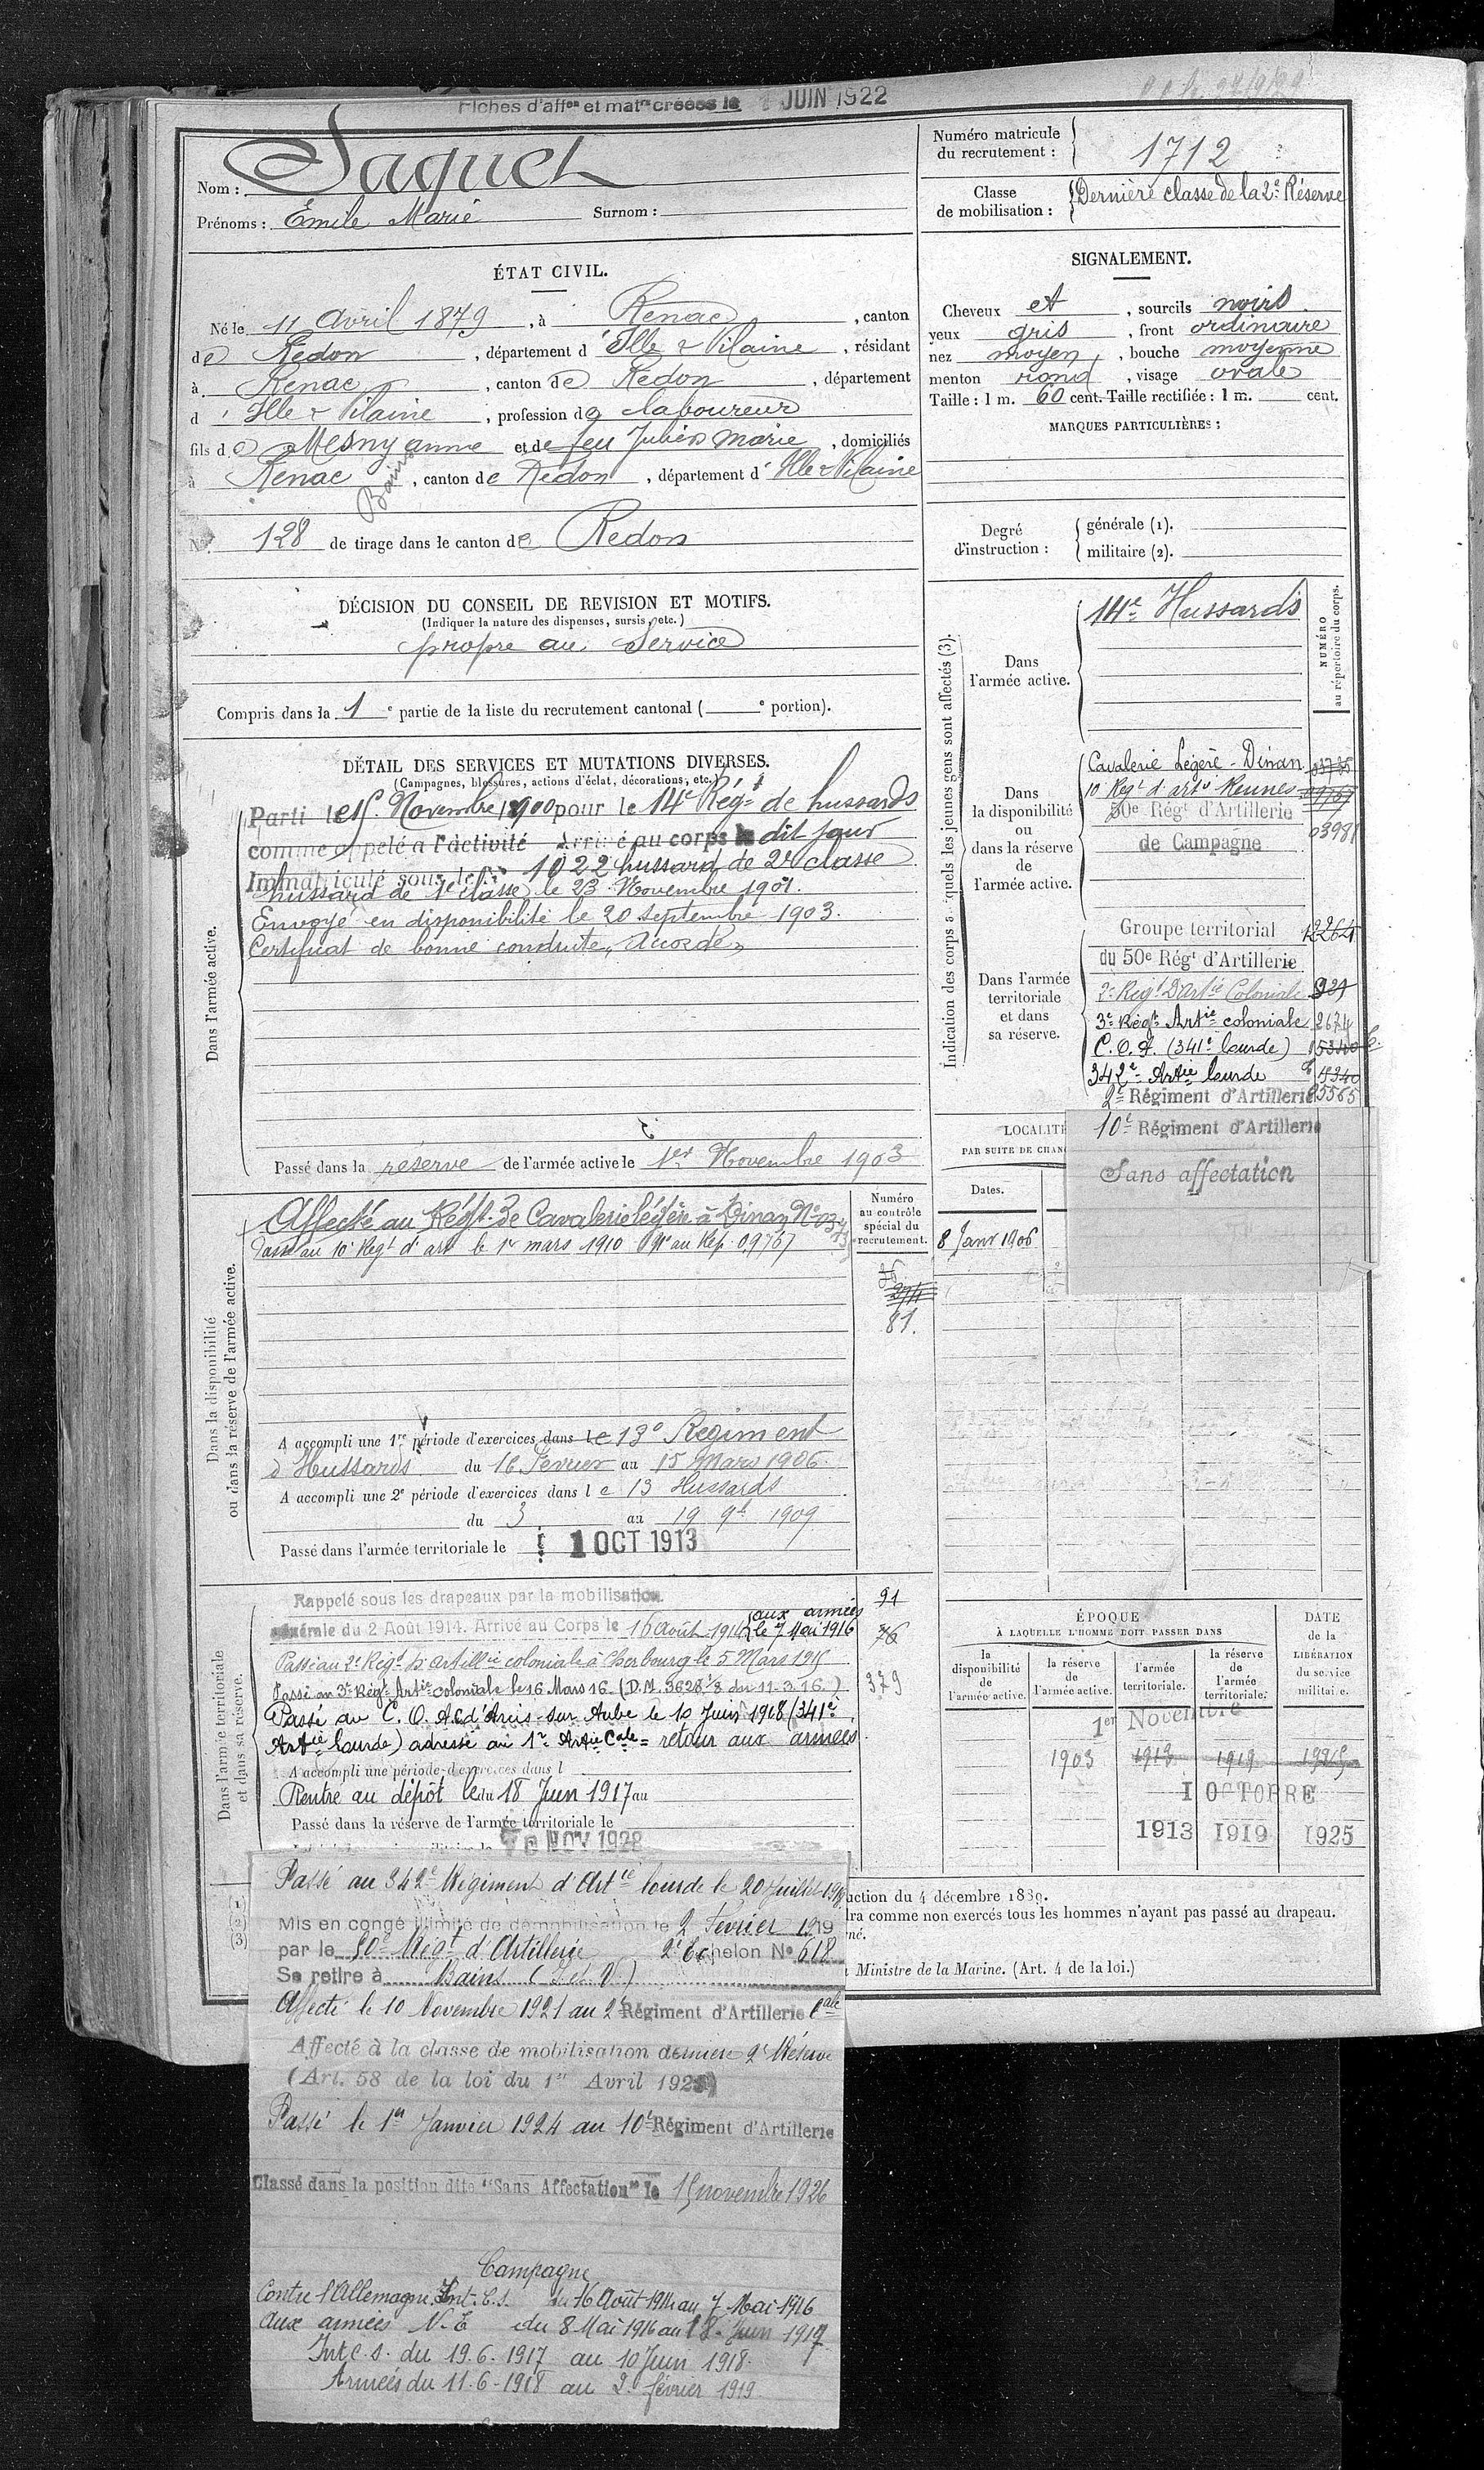 Fiches d'affon et matle créées le 1 JUIN 1922
Nom : Jaquet
Prénoms : Émile Marie Surnom :
Numéro matricule du recrutement : 1712
Classe de mobilisation : Dernière classe de la 2e Réserve
ÉTAT CIVIL.
Né le 11 Avril 1879, à Renac, canton
de Redon, département d'Ille & Vilaine, résidant
à Renac, canton de Redon, département
d'Ille & Vilaine, profession de laboureur
fils de Mesny anne et de feu Julien Marie, domiciliés
à Renac Bains, canton de Redon, département d'Ille & Vilaine
No 128 de tirage dans le canton de Redon
SIGNALEMENT.
Cheveux et, sourcils noirs
yeux gris, front ordinaire
nez moyen, bouche moyenne
menton rond, visage ovale
Taille : 1 m. 60 cent. Taille rectifiée : 1 m. cent.
MARQUES PARTICULIÈRES :
Degré d'instruction : générale (1).
militaire (2).
DÉCISION DU CONSEIL DE REVISION ET MOTIFS.
(Indiquer la nature des dispenses, sursis, etc.)
propre au service
Compris dans la 1e partie de la liste du recrutement cantonal ( e portion).
DÉTAIL DES SERVICES ET MUTATIONS DIVERSES.
(Campagnes, blessures, actions d'éclat, décorations, etc.)
Dans l'armée active.
Parti le 15 Novembre 1900 pour le 14e Régt de hussards
comme appelé à l'activité Arrivé au corps le dit jour
Immatriculé sous le no 1022 hussard de 2e classe
hussard de 1e classe le 23 Novembre 1901.
Envoyé en disponibilité le 20 septembre 1903.
Certificat de bonne conduite, Accordé
Passé dans la réserve de l'armée active le 1er Novembre 1903
Indication des corps auxquels les jeunes gens sont affectés (3).
NUMÉRO au répertoire du corps.
Dans l'armée active.
14e Hussards
Dans la disponibilité ou dans la réserve de l'armée active.
Cavalerie Légère - Dinan
10 Regt d'arte Rennes 09767
50e Régt d'Artillerie
de Campagne 03981
Dans l'armée territoriale et dans sa réserve.
Groupe territorial
du 50e Régt d'Artillerie
2e Régt D'artie Coloniale
3e Régt Artie coloniale 2674
C. O. A. (341e lourde) 15340
342e Artie lourde 15340
2e Régiment d'Artillerie 25565
10e Régiment d'Artillerie
Sans affectation
LOCALITÉ
PAR SUITE DE CHAN
Dates.
8 Janv 1906
Dans la disponibilité ou dans la réserve de l'armée active.
Numéro au contrôle spécial du recrutement.
Affecté au Régt de Cavalerie légère à Dinan No
Passé au 10e Regt d'art le 1er mars 1910 No au Rép. 09767
81.
A accompli une 1re période d'exercices dans le 13e Régiment
d'Hussards du 16 Février au 15 Mars 1906.
A accompli une 2e période d'exercices dans le 13 Hussards
du 3 au 19 9b 1909
Passé dans l'armée territoriale le 1 OCT 1913
Dans l'armée territoriale et dans sa réserve.
Rappelé sous les drapeaux par la mobilisation
générale du 2 Août 1914. Arrivé au Corps le 16 août 1914 aux armées le 7 Mai 1916
Passé au 2e Régt d'artillie coloniale à Cherbourg le 5 Mars 1915
Passé au 3e Régt Artie coloniale le 16 Mars 16 (D.M. 3628 1/8 du 11-3-16)
Passé au C. O. A. C. d'Arcis-sur Aube le 10 Juin 1918 (341e
Artie Lourde) adressé au 1r Artie Cale = retour aux armées
A accompli une période d'exercices dans l
Rentré au dépôt le du 18 Juin 1917 au
Passé dans la réserve de l'armée territoriale le
NOV 1928
91
76
379
ÉPOQUE
À LAQUELLE L'HOMME DOIT PASSER DANS
la disponibilité de l'armée active.
la réserve de l'armée active.
l'armée territoriale.
la réserve de l'armée territoriale.
DATE de la LIBÉRATION du service militaire.
1er Novembre
1903 1913 1919
1 OCTOBRE
1913 1919 1925
uction du 4 décembre 1889.
dra comme non exercés tous les hommes n'ayant pas passé au drapeau.
né.
Ministre de la Marine. (Art. 4 de la loi.)
Passé au 342e Régiment d'Artie lourde le 20 Juillet 1918
Mis en congé illimité de démobilisation le 2 Février 1919
par le 50e Régt d'Artillerie 2e Echelon No 618
Se retire à Bains (I et V)
Affecté le 10 Novembre 1921 au 2e Régiment d'Artillerie Cale
Affecté à la classe de mobilisation dernière 2e Réserve
(Art. 58 de la loi du 1er Avril 1923)
Passé le 1er Janvier 1924 au 10e Régiment d'Artillerie
Classé dans la position dite "Sans Affectation" le 15 novembre 1926
Campagne
Contre l'Allemagne Int. C. S. du 16 Août 1914 au 7 Mai 1916
Aux armées N. E du 8 Mai 1916 au 18 Juin 1917
Int c. s. du 19. 6. 1917 au 10 Juin 1918.
Armées du 11. 6 - 1918 au 2 février 1919